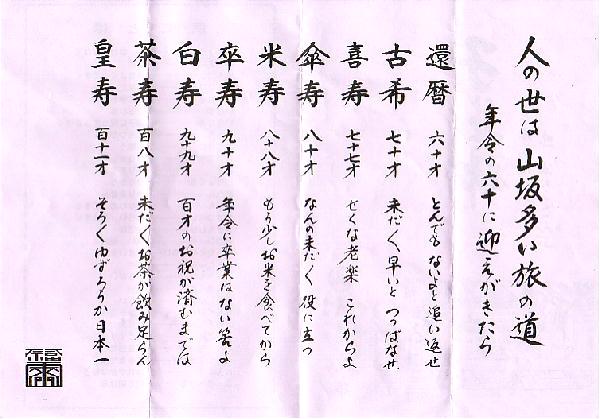 人の世は山坂多い旅の道
年令の六十に迎えがきたら
還暦 六十才 とんでもないよと追い返せ
古希 七十才 未だ〱早いと つっぱなせ
喜寿 七十七才 せくな老楽 これからよ
傘寿 八十才 なんの未だ〱 役に立つ
米寿 八十八才 もう少しお米を食べてから
卒寿 九十才 年令に卒業はない筈よ
白寿 九十九才 百才のお祝が済むまでは
茶寿 百八才 未だ〱お茶が飲み足らん
皇寿 百十一才 そろ〱ゆずろうか日本一